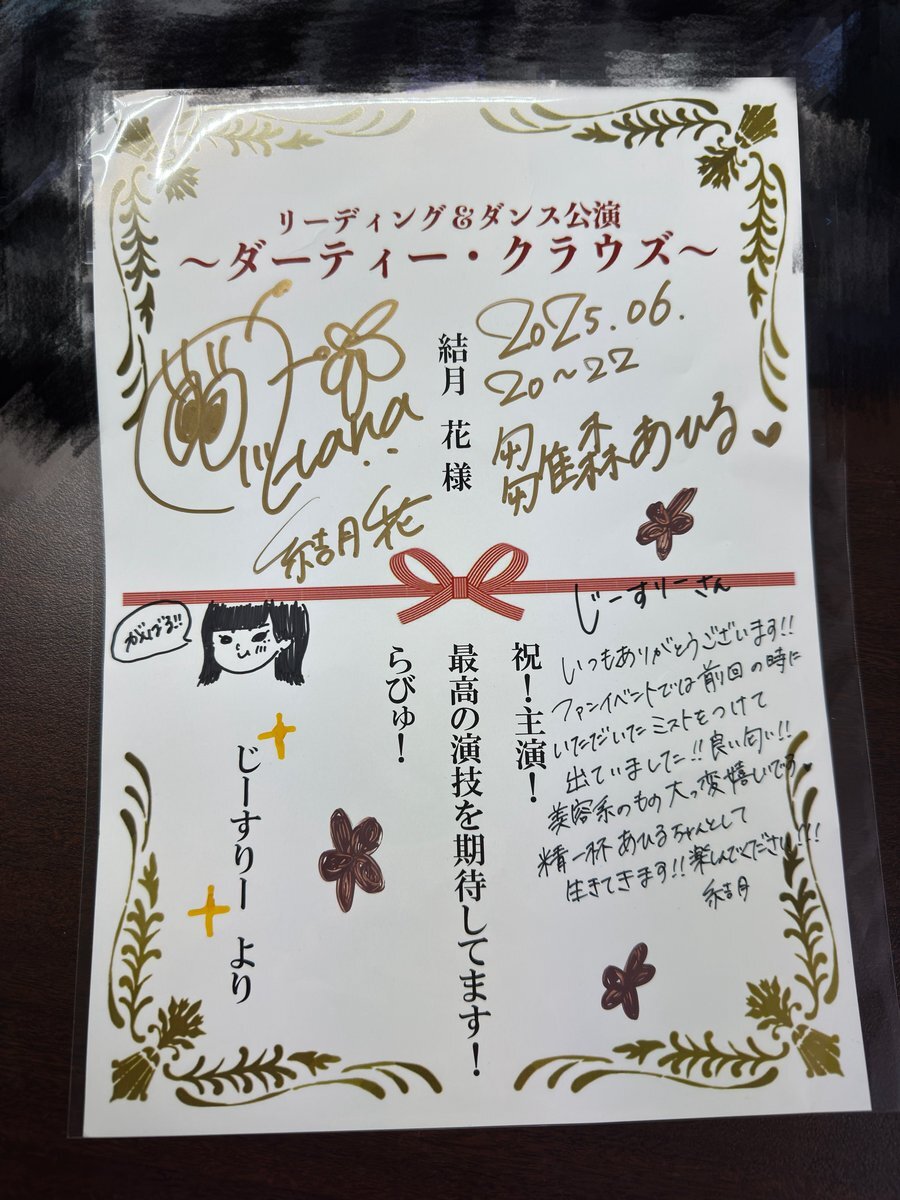 リーディング&ダンス公演
～ダーティー・クラウズ～
結月 花 様
Hana
結月花
2025.06.
20～22
森あひる
がんばる!!
祝!主演!
最高の演技を期待してます!
らびゅ!
じーすりー より
じーすりーさん
いつもありがとうございます!!
ファンイベントでは前回の時に
いただいたミストをつけて
出ていました!!良い匂い!!
美容系のもの大っ変嬉しいです
精一杯あひるちゃんとして
生きてきます!!楽しんでください!!!
結月